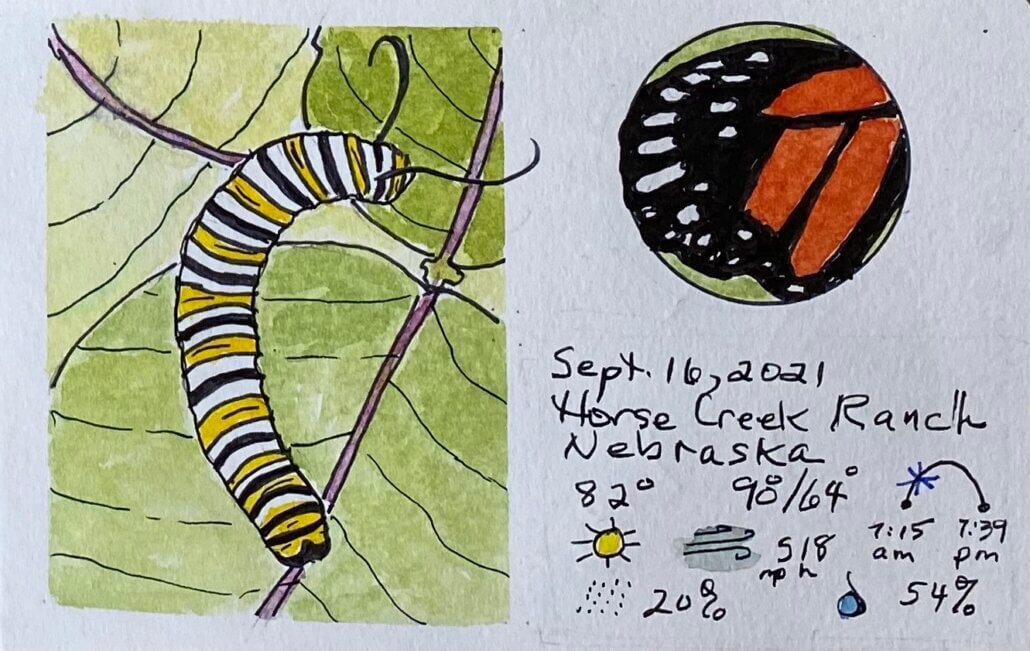 Sept. 16, 2021
Horse Creek Ranch
Nebraska
82° 90°/64°
7:15 am 7:39 pm
S 18 mph
20% 54%